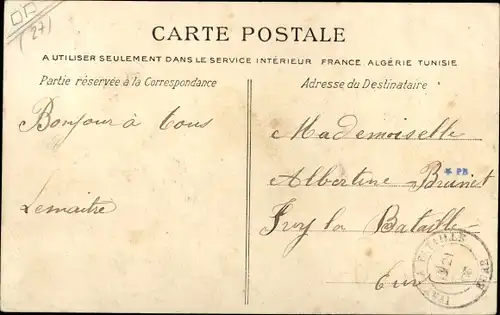 (27)
CARTE POSTALE
A UTILISER SEULEMENT DANS LE SERVICE INTÉRIEUR FRANCE ALGÉRIE TUNISIE
Partie réservée à la Correspondance
Adresse du Destinataire
Bonjour à tous
Lemaitre
Mademoiselle
Albertine Brunet
* PB
Ivry la Bataille
Eure
LA BATAILLE
EURE